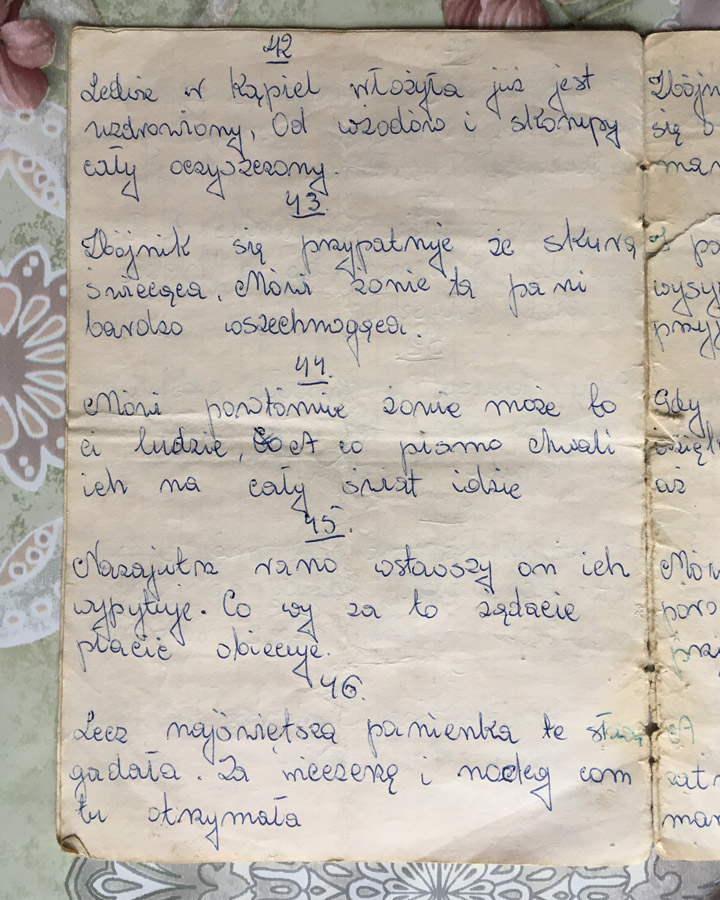 42
Ledwie w kąpiel włożyła już jest
uzdrowiony, Od wżodów i skorupy
cały oczyszczony.
43.
Zbójnik się przypatruje że skurą
świecąca, Mówi żonie ta pani
bardzo wszechmogąca.
44.
Mówi powtórnie żonie może to
ci ludzie, A co pismo chwali
ich na cały świat idzie
45.
Nazajutrz rano wstawszy on ich
wypytuje. Co wy za to żądacie
płacić obiecuje.
46.
Lecz najświętszą panienka te
gadała. Za wieczerzę i nocleg com
tu otrzymała
Zbójn
się o
man
pa
wysyp
przyj
Gdy
wzięł
aż
Mów
poro
prz
A
zatr
mar